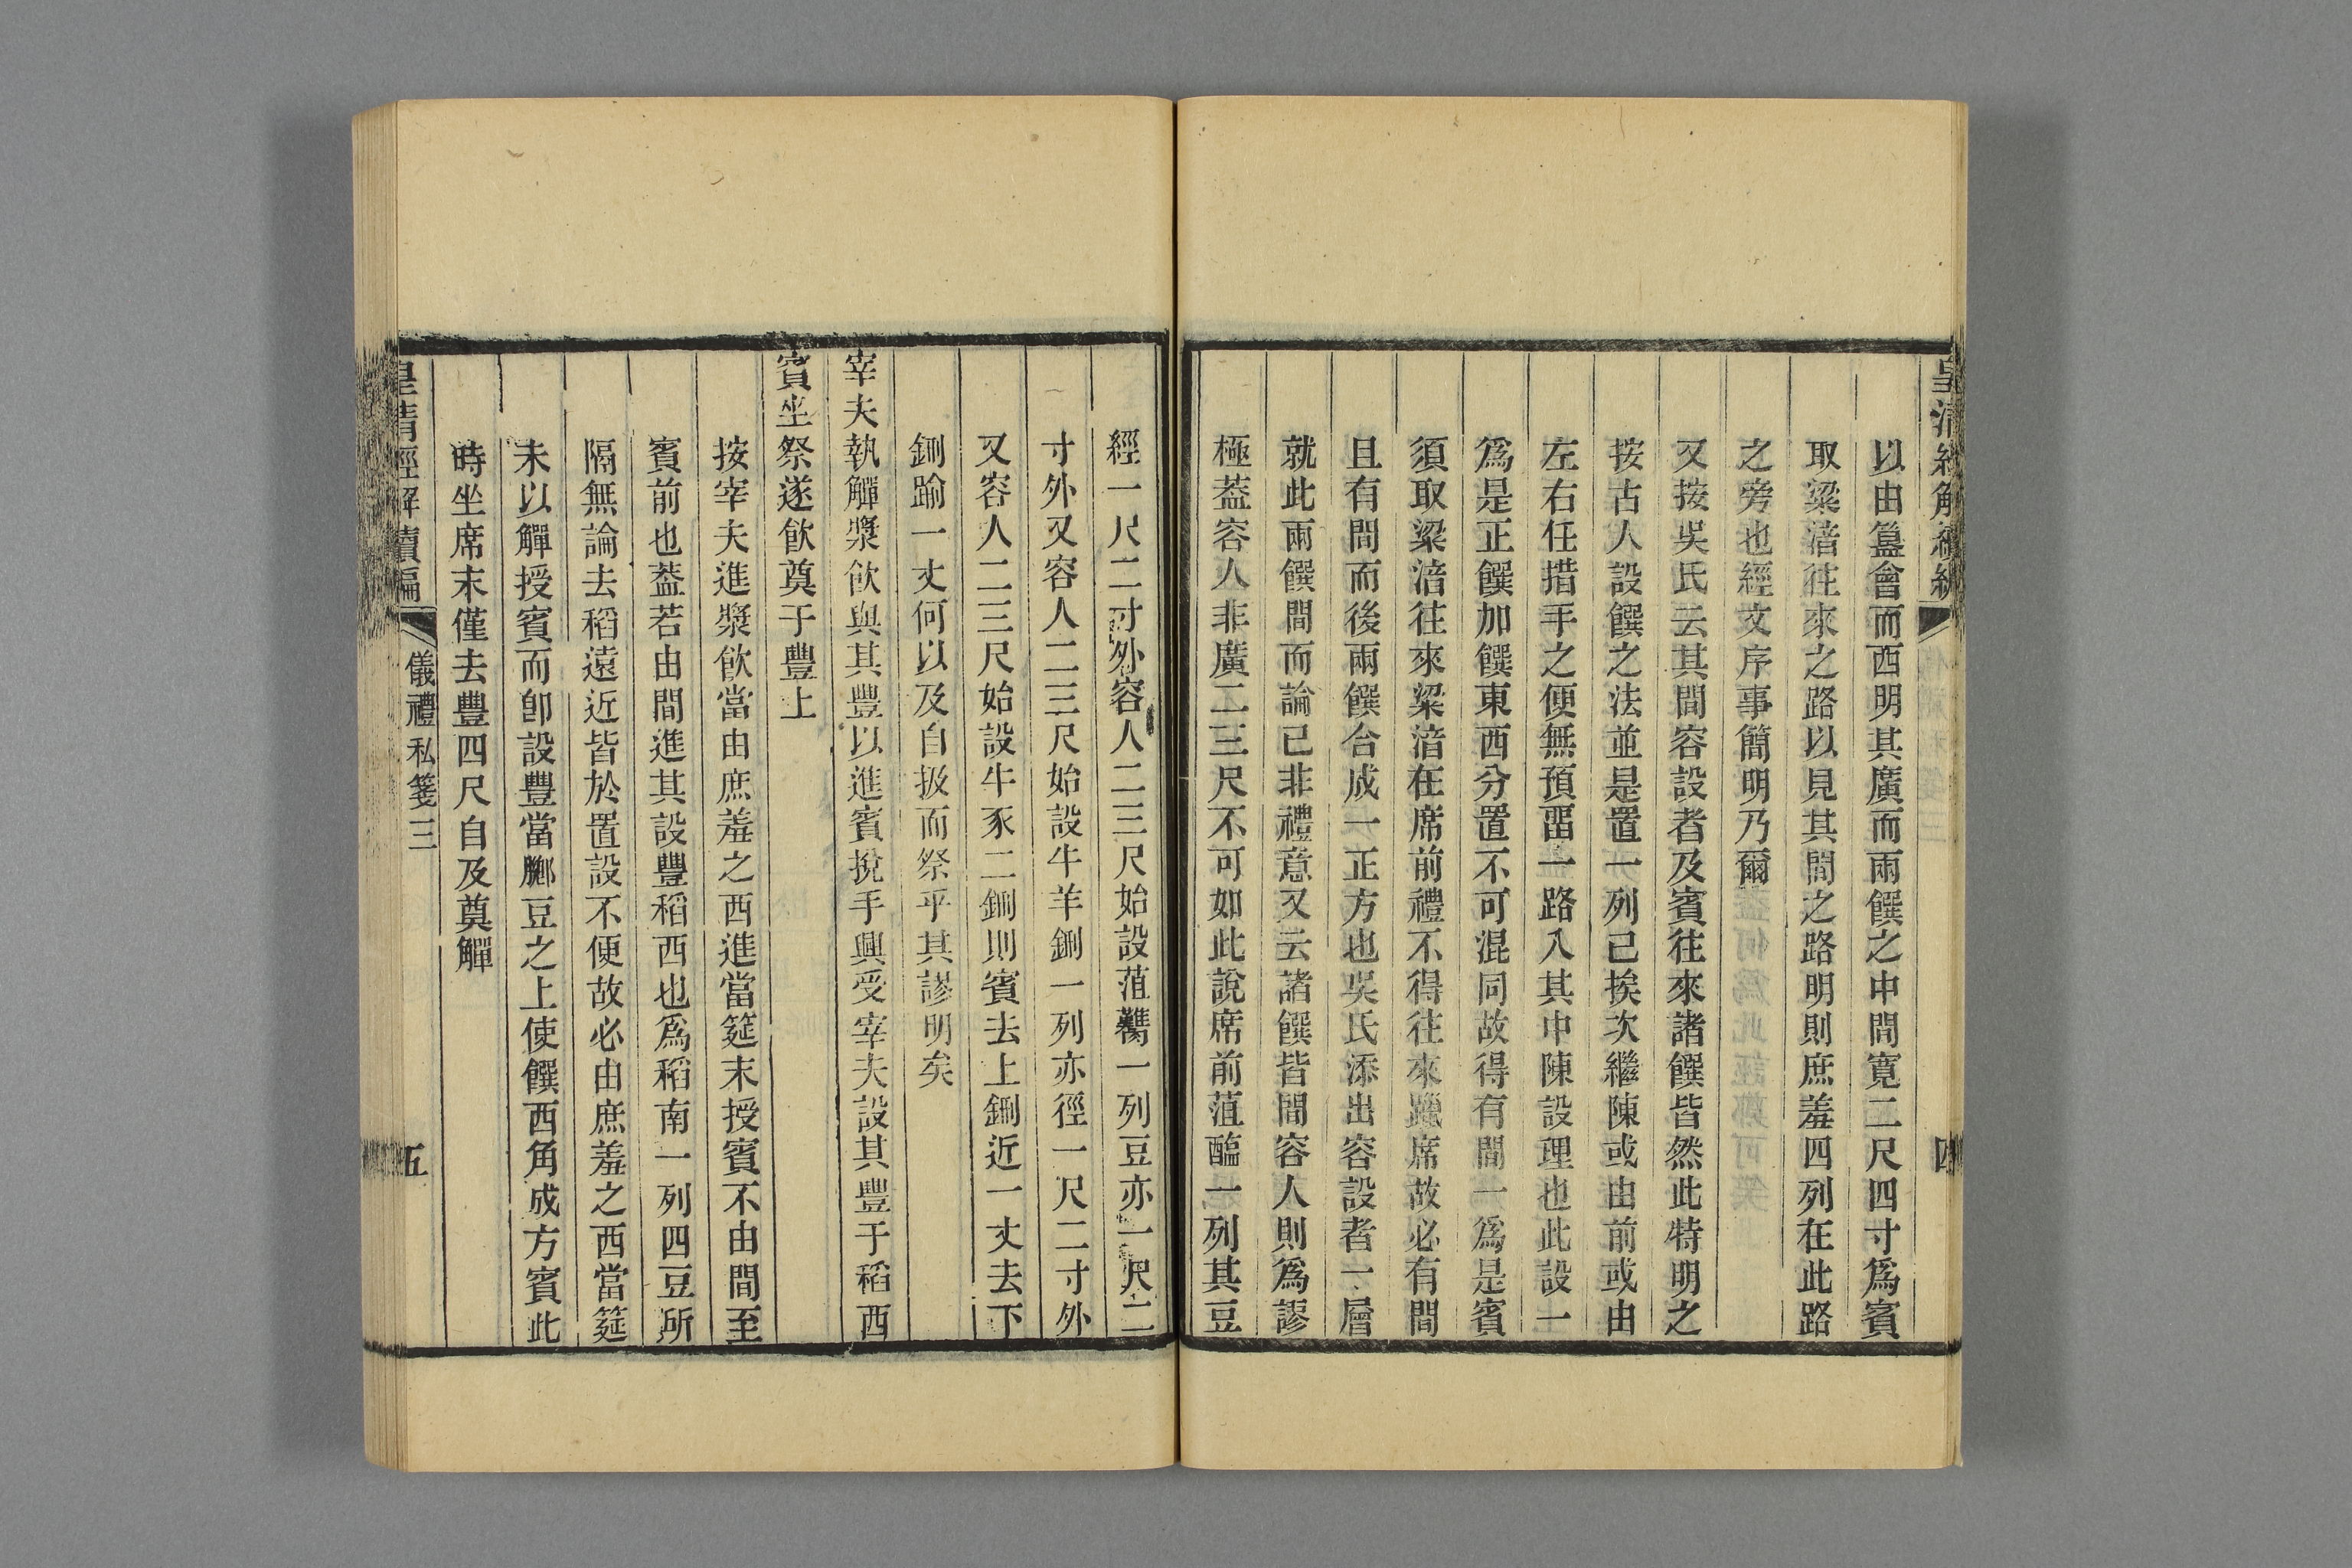 皇清經解續編
四
以由簋會而西明其廣而兩饌之中間寬二尺四寸爲賓
取粱湆往來之路以見其間之路明則庶羞四列在此路
之旁也經文序事簡明乃爾
又按吳氏云其間容設者及賓往來諸饌皆然此特明之
按古人設饌之法並是置一列已挨次繼陳或由前或由
左右任措手之便無預畱一路入其中陳設理也此設一
爲是正饌加饌東西分置不可混同故得有間一爲是賓
須取粱湆往來粱湆在席前禮不得往來躐席故必有間
且有間而後兩饌合成一正方也吳氏添出容設者一層
就此兩饌間而論已非禮意又云諸饌皆間容人則爲謬
極葢容人非廣二三尺不可如此說席前菹醢一列其豆
經一尺二寸外容人二三尺始設菹臡一列豆亦一尺二
寸外又容人二三尺始設牛羊鉶一列亦徑一尺二寸外
又容人二三尺始設牛豕二鉶則賓去上鉶近一丈去下
鉶踰一丈何以及自扱而祭乎其謬明矣
宰夫執觶漿飲與其豐以進賓挩手興受宰夫設其豐于稻西
賓坐祭遂飲奠于豐上
按宰夫進漿飲當由庶羞之西進當筵末授賓不由間至
賓前也葢若由間進其設豐稻西也爲稻南一列四豆所
隔無論去稻遠近皆於置設不便故必由庶羞之西當筵
末以觶授賓而卽設豐當膷豆之上使饌西角成方賓此
時坐席末僅去豐四尺自及奠觶
皇清經解續編
儀禮私箋三
五